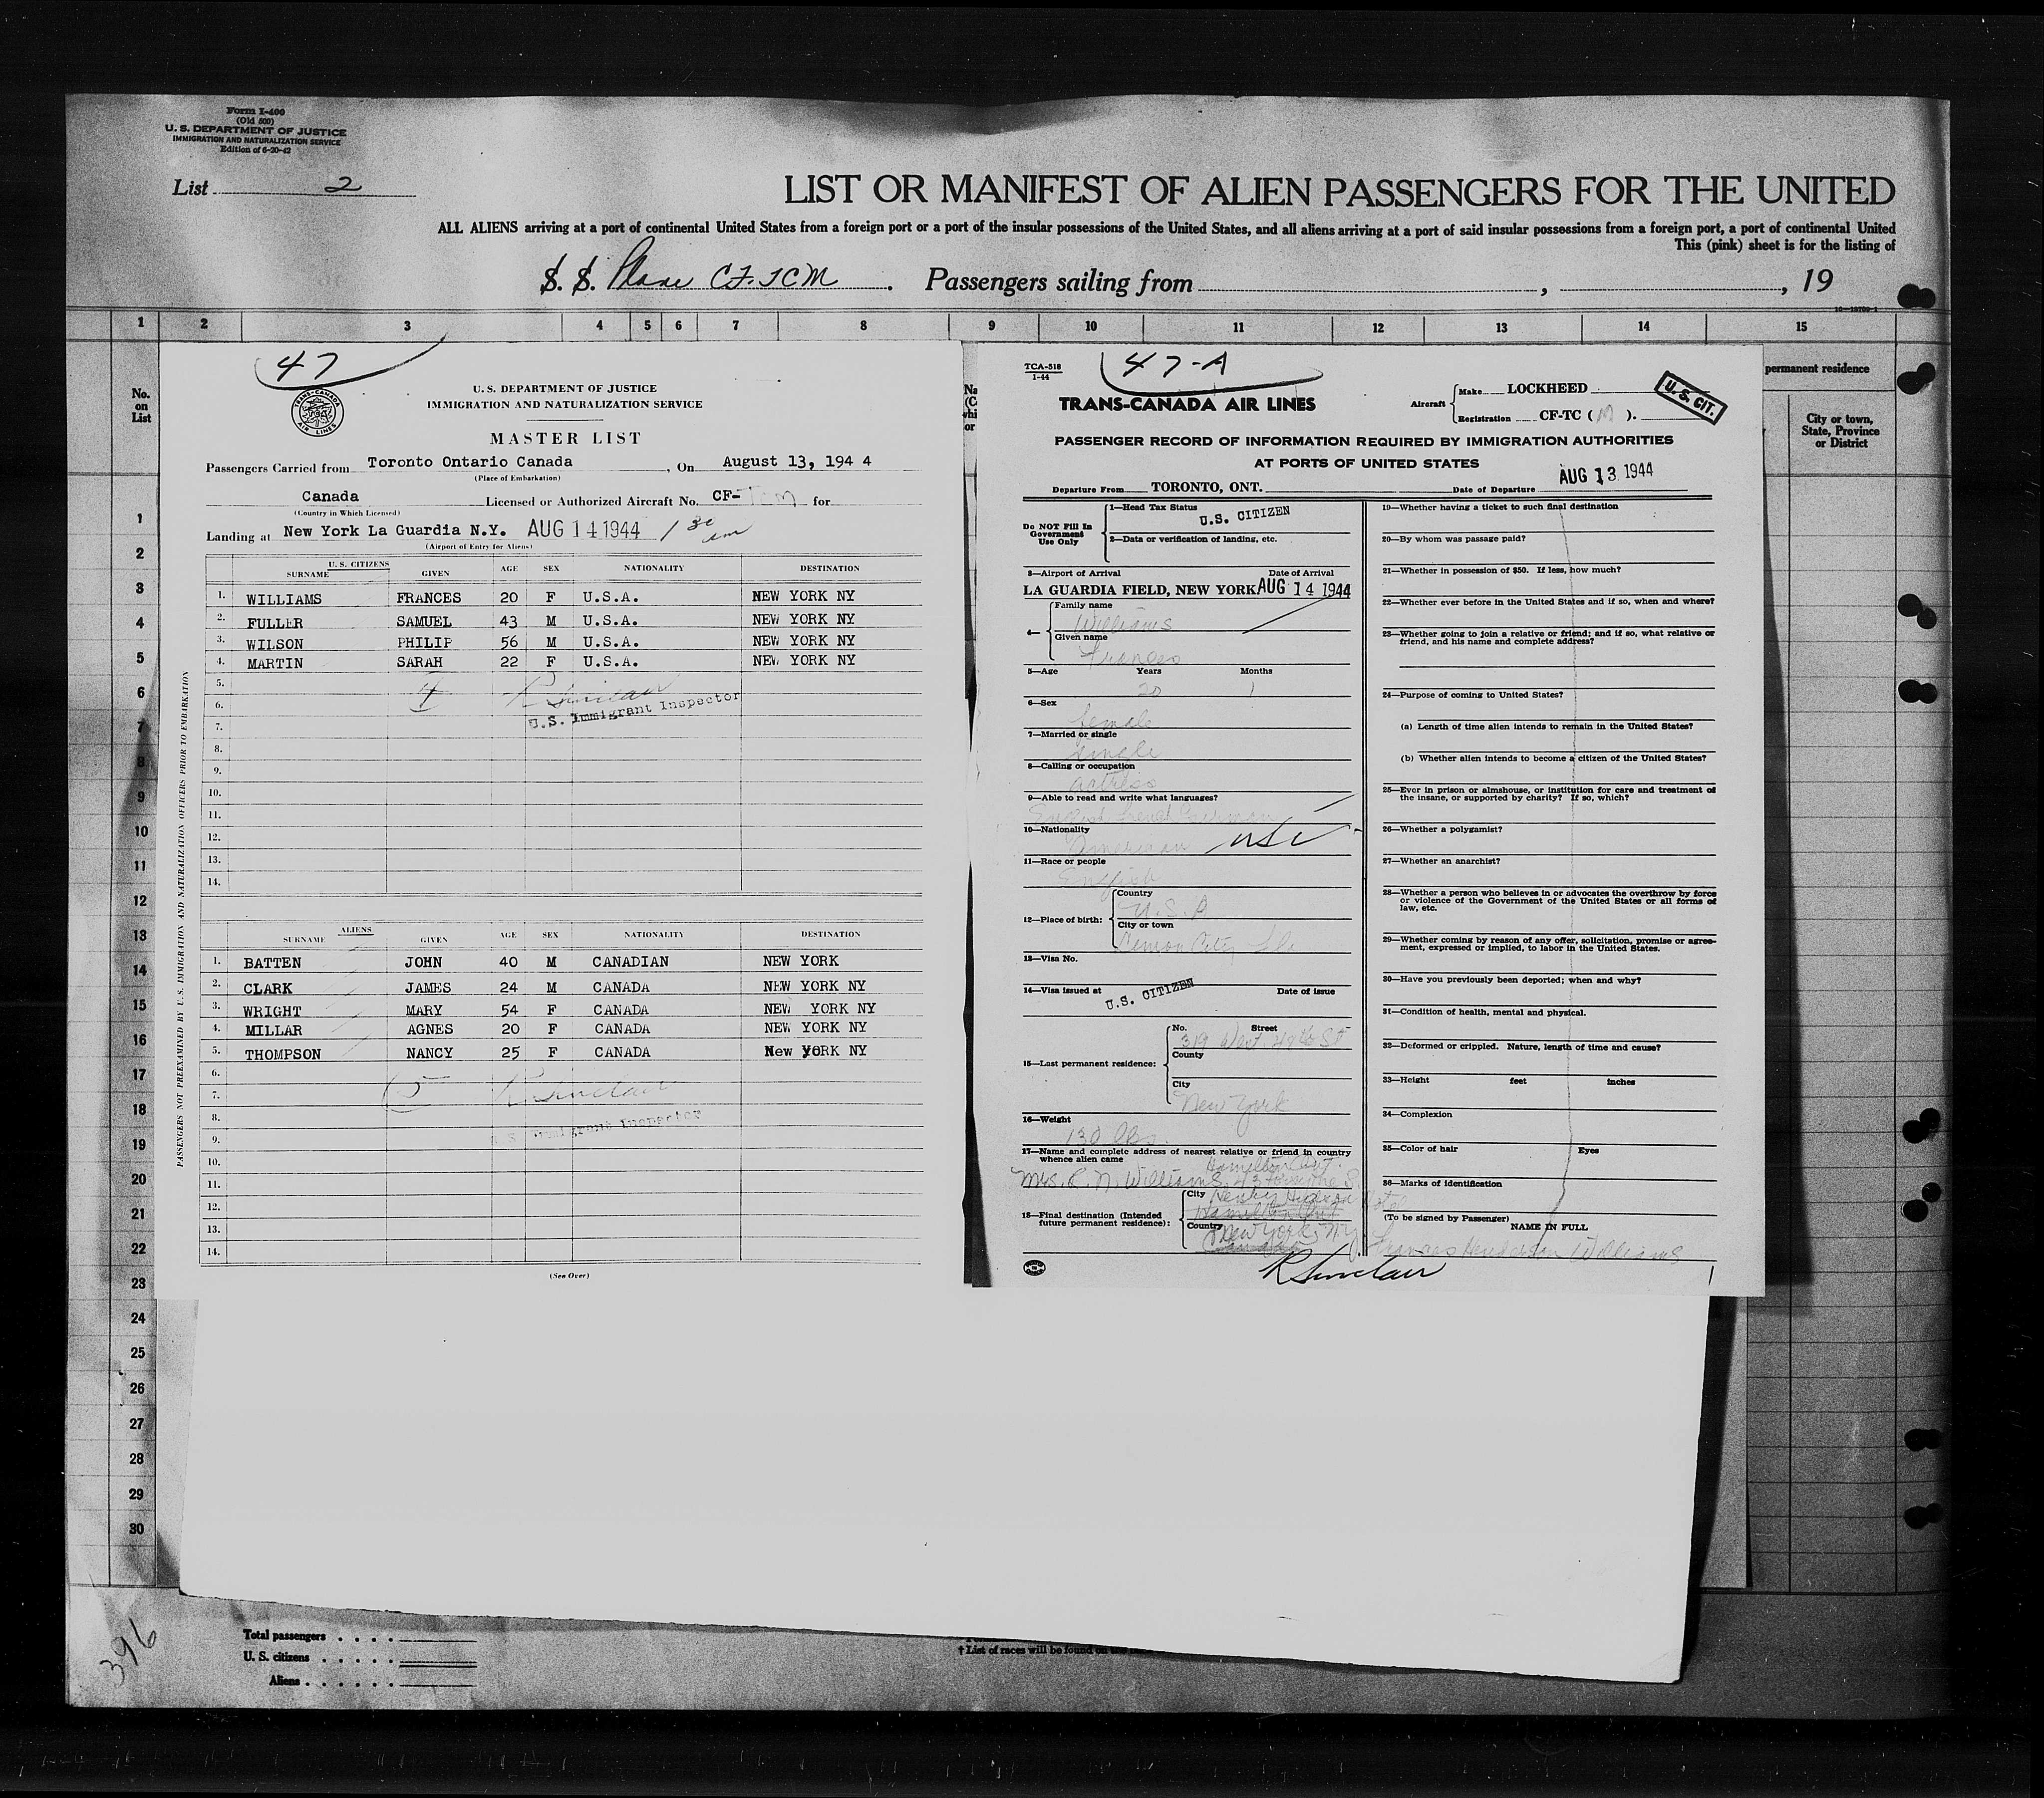 Form I-400
(Old 500)
U. S. DEPARTMENT OF JUSTICE
IMMIGRATION AND NATURALIZATION SERVICE
Edition of 6-20-42
List 2
LIST OR MANIFEST OF ALIEN PASSENGERS FOR THE UNITED
ALL ALIENS arriving at a port of continental United States from a foreign port or a port of the insular possessions of the United States, and all aliens arriving at a port of said insular possessions from a foreign port, a port of continental United
This (pink) sheet is for the listing of
S. S. Plane CF-TCM . Passengers sailing from , , 19
1 2 3 4 5 6 7 8 9 10 11 12 13 14 15
No.
on
List
permanent residence
City or town,
State, Province
or District
1
2
3
4
5
6
7
8
9
10
11
12
13
14
15
16
17
18
19
20
21
22
23
24
25
26
27
28
29
30
47
TRANS-CANADA AIR LINES
U. S. DEPARTMENT OF JUSTICE
IMMIGRATION AND NATURALIZATION SERVICE
MASTER LIST
Passengers Carried from Toronto Ontario Canada , On August 13, 194 4
(Place of Embarkation)
Canada Licensed or Authorized Aircraft No. CF-TCM for
(Country in Which Licensed)
Landing at New York La Guardia N.Y. AUG 14 1944 1 30 am
(Airport of Entry for Aliens)
U. S. CITIZENS
SURNAME GIVEN AGE SEX NATIONALITY DESTINATION
1. WILLIAMS FRANCES 20 F U.S.A. NEW YORK NY
2. FULLER SAMUEL 43 M U.S.A. NEW YORK NY
3. WILSON PHILIP 56 M U.S.A. NEW YORK NY
4. MARTIN SARAH 22 F U.S.A. NEW YORK NY
5.
6. 4 R Sinclair
7. U.S. Immigrant Inspector
8.
9.
10.
11.
12.
13.
14.
ALIENS
SURNAME GIVEN AGE SEX NATIONALITY DESTINATION
1. BATTEN JOHN 40 M CANADIAN NEW YORK
2. CLARK JAMES 24 M CANADA NEW YORK NY
3. WRIGHT MARY 54 F CANADA NEW YORK NY
4. MILLAR AGNES 20 F CANADA NEW YORK NY
5. THOMPSON NANCY 25 F CANADA New YORK NY
6.
7. 5 R Sinclair
8. U.S. Immigrant Inspector
9.
10.
11.
12.
13.
14.
(See Over)
PASSENGERS NOT PREEXAMINED BY U. S. IMMIGRATION AND NATURALIZATION OFFICERS PRIOR TO EMBARKATION
TCA-518
1-44
47-A
TRANS-CANADA AIR LINES
Aircraft Make LOCKHEED
Registration CF-TC ( M ).
U. S. CIT.
PASSENGER RECORD OF INFORMATION REQUIRED BY IMMIGRATION AUTHORITIES
AT PORTS OF UNITED STATES
Departure From TORONTO, ONT. Date of Departure AUG 13 1944
Do NOT Fill In
Government
Use Only
1—Head Tax Status U.S. CITIZEN
2—Data or verification of landing, etc.
3—Airport of Arrival Date of Arrival
LA GUARDIA FIELD, NEW YORK AUG 14 1944
4— Family name
Williams
Given name
Frances
5—Age Years Months
20 1
6—Sex
female
7—Married or single
Single
8—Calling or occupation
actress
9—Able to read and write what languages?
English French German
10—Nationality
American USC
11—Race or people
English
12—Place of birth: Country
U.S.A
City or town
Lemon City Fla
13—Visa No.
14—Visa issued at U.S. CITIZEN Date of issue
15—Last permanent residence: No. Street
319 West 48th St
County
City
New York
16—Weight
130 lbs.
17—Name and complete address of nearest relative or friend in country
whence alien came
Hamilton Ont.
Mrs. R. N. Williams, 43
18—Final destination (Intended
future permanent residence):
City Henry Hudson Hotel
Hamilton Ont
Country New York, N.Y.
Canada
19—Whether having a ticket to such final destination
20—By whom was passage paid?
21—Whether in possession of $50. If less, how much?
22—Whether ever before in the United States and if so, when and where?
23—Whether going to join a relative or friend; and if so, what relative or
friend, and his name and complete address?
24—Purpose of coming to United States?
(a) Length of time alien intends to remain in the United States?
(b) Whether alien intends to become a citizen of the United States?
25—Ever in prison or almshouse, or institution for care and treatment of
the insane, or supported by charity? If so, which?
26—Whether a polygamist?
27—Whether an anarchist?
28—Whether a person who believes in or advocates the overthrow by force
or violence of the Government of the United States or all forms of
law, etc.
29—Whether coming by reason of any offer, solicitation, promise or agree-
ment, expressed or implied, to labor in the United States.
30—Have you previously been deported; when and why?
31—Condition of health, mental and physical.
32—Deformed or crippled. Nature, length of time and cause?
33—Height feet inches
34—Complexion
35—Color of hair Eyes
36—Marks of identification
(To be signed by Passenger)
NAME IN FULL
Frances Henderson Williams
R Sinclair
1
396
Total passengers
U. S. citizens
Aliens
† List of races will be found on